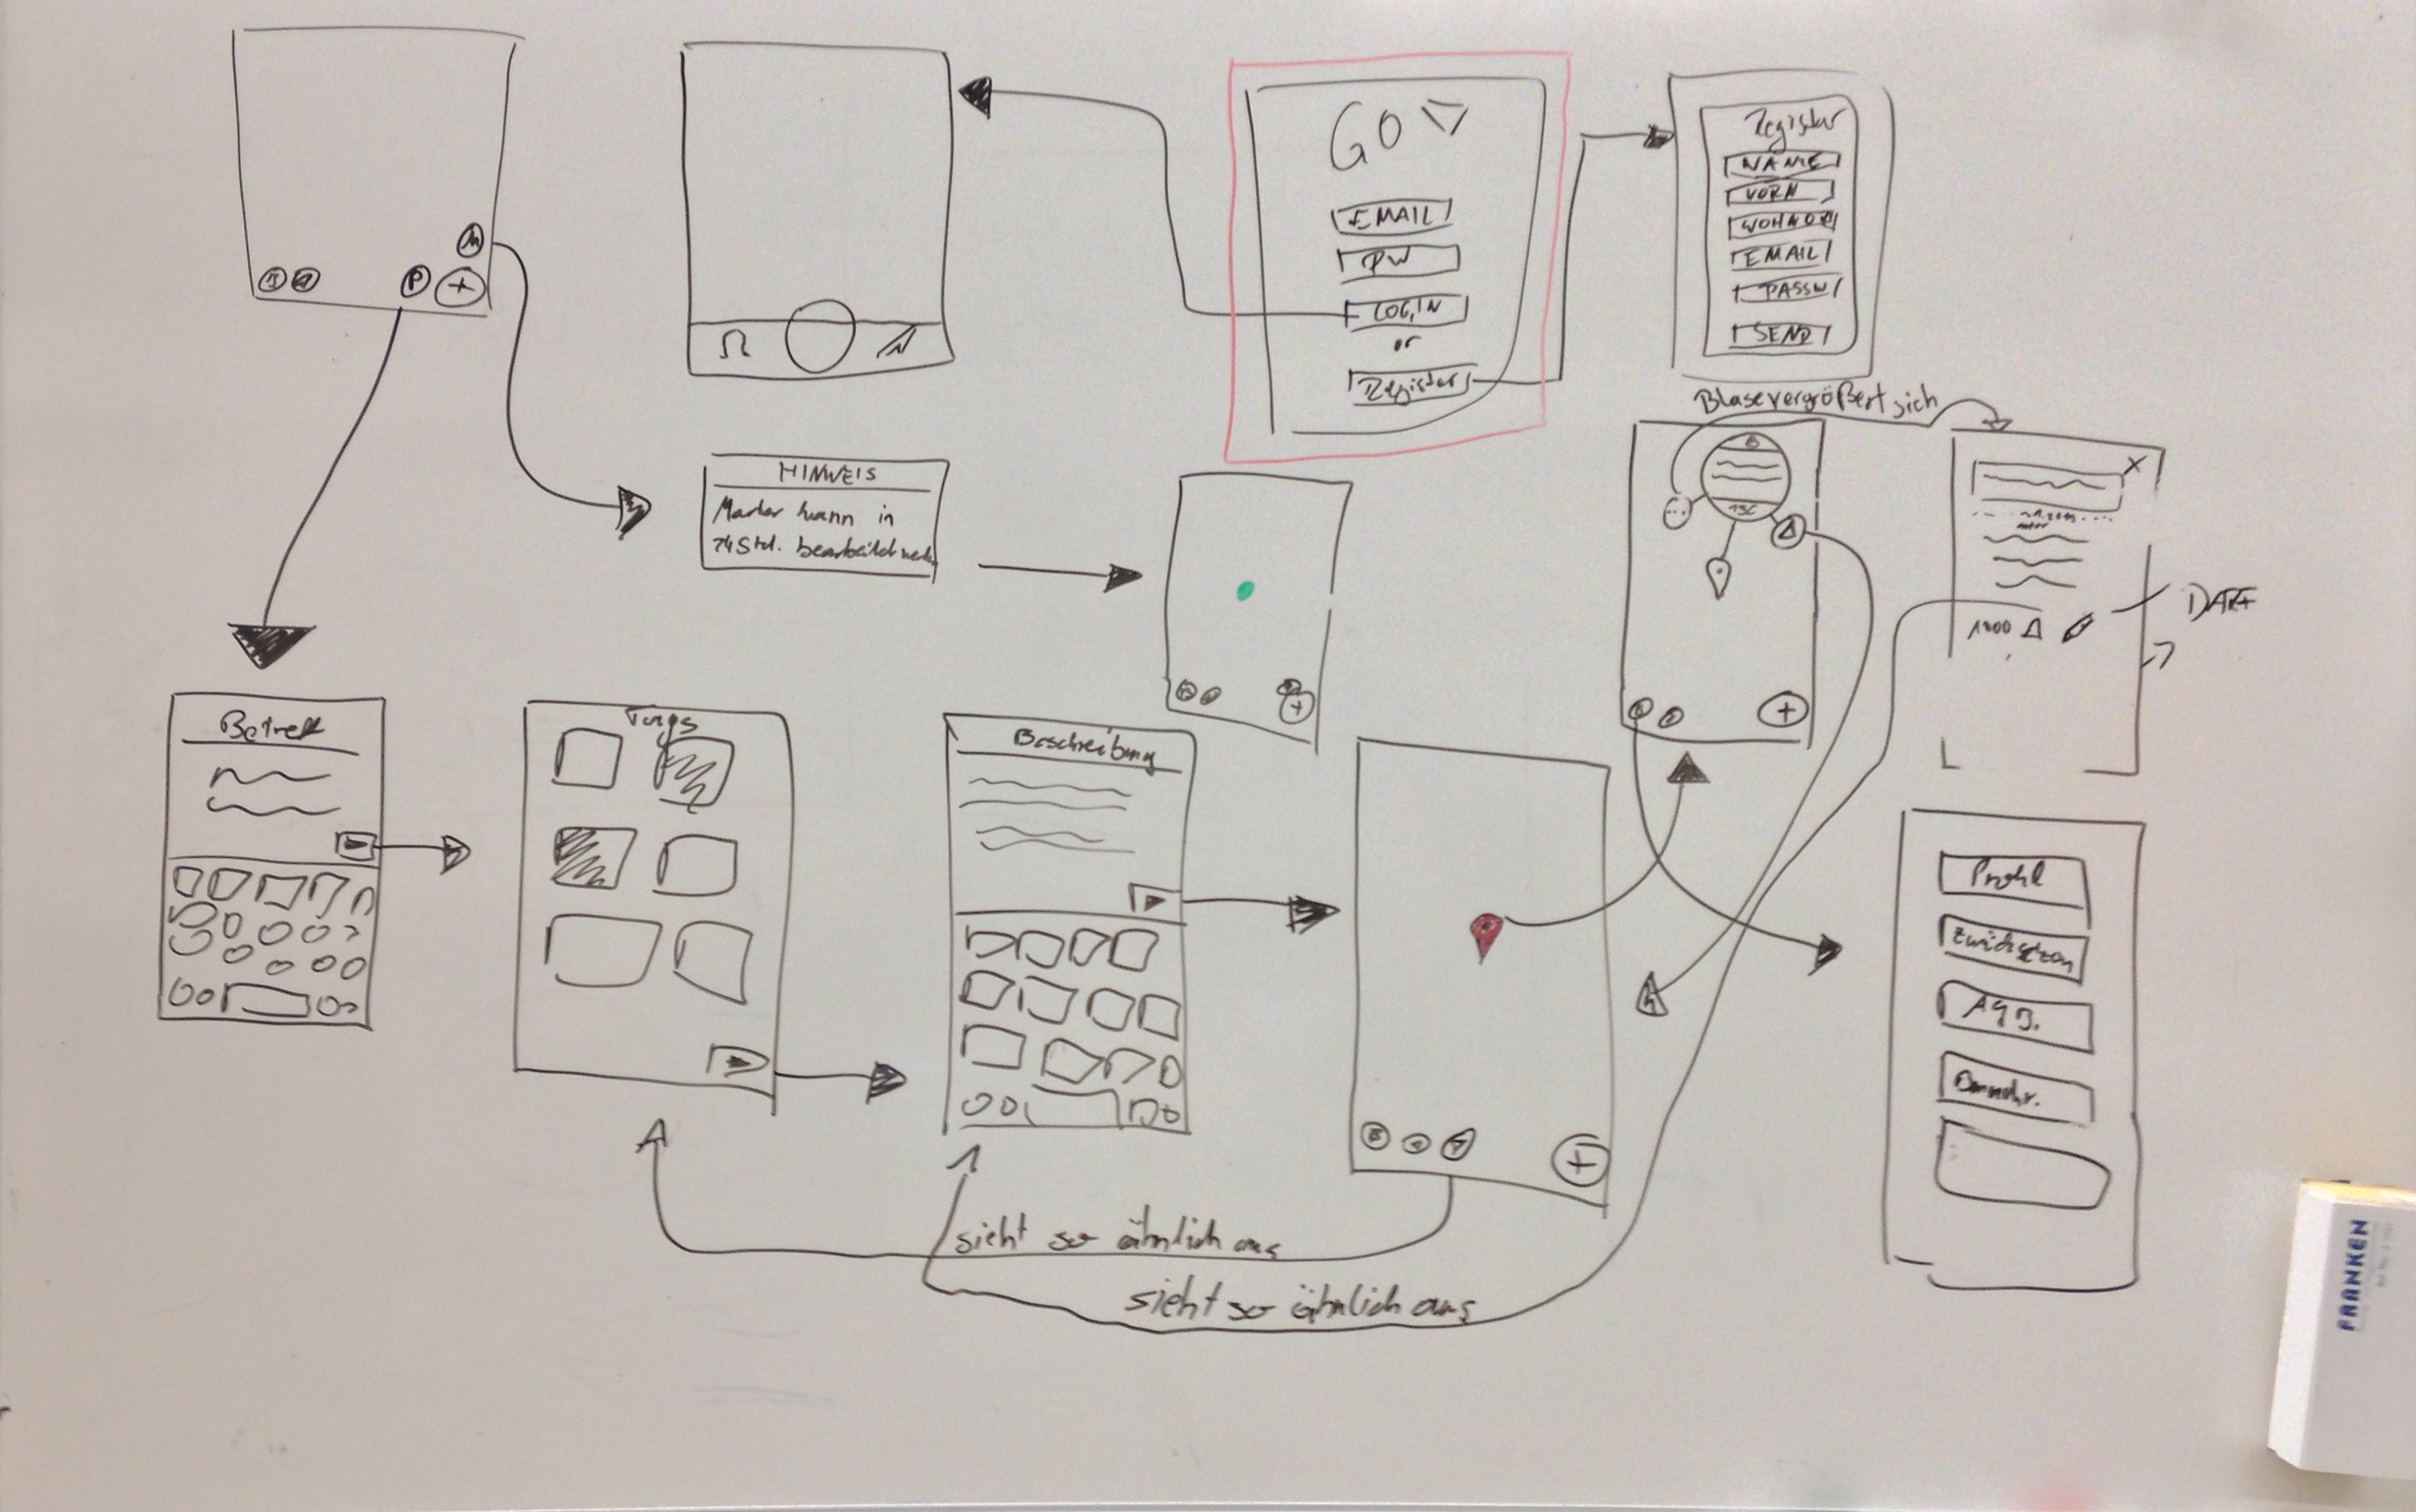 GO
EMAIL
PW
LOGIN
or
Register
Register
NAME
VORN
WOHNOR
EMAIL
PASSW
SEND
M
P
+
HINWEIS
Marker kann in
24 Std. bearbeitet werden
+
Blase vergrößert sich
...
+
X
1000
Betreff
Tags
Beschreibung
+
Profil
AGB.
sieht so ähnlich aus
sieht so ähnlich aus
FRANKEN